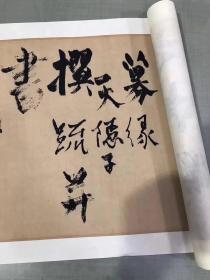 募緣
隱子
撰疏并
書